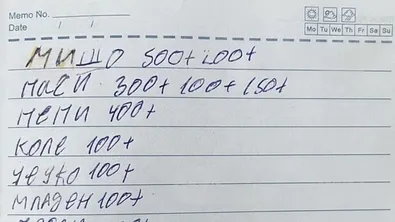 Memo No.
Date / /
Mo Tu We Th Fr Sa Su
МИШО 500+200+
МАСИ 300+100+150+
МЕМИ 400+
КОЛЕ 100+
ЧЕУКО 100+
МЛАДЕН 100+